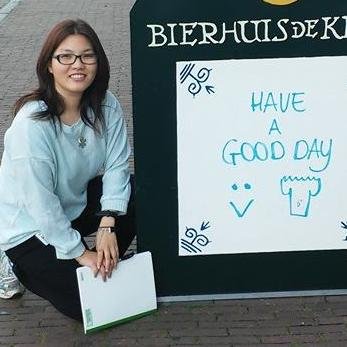 BIERHUIS DE K
HAVE
A
GOOD DAY